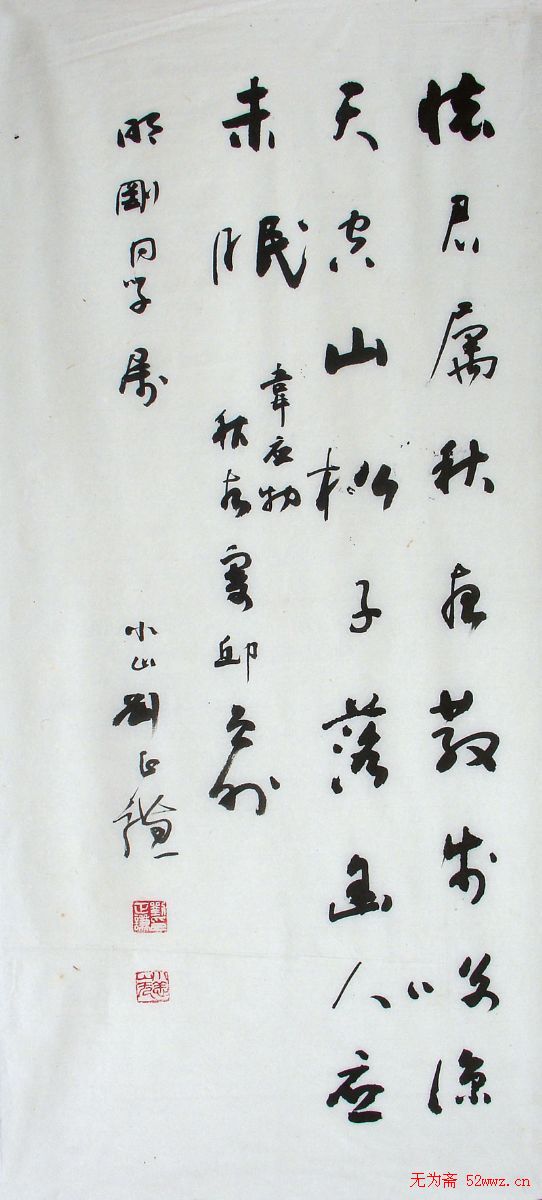 怀君属秋夜散步咏凉
天空山松子落幽人应
未眠
韋应物
秋夜寄邱员外
明剛同学属
小山劉正謙
无为斋 52wwz.cn